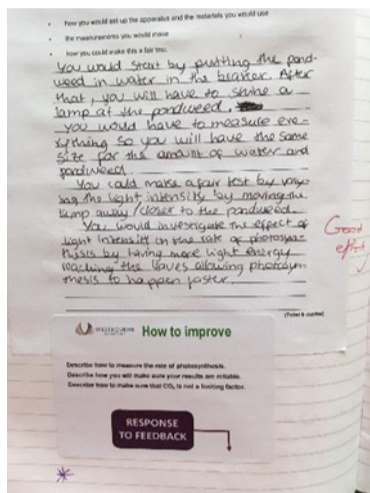 how you would set up the apparatus and the materials you would use
the measurements you would make
how you could make this a fair test.
You would start by putting the pond-
weed in water in the beaker. After
that, you will have to shine a
lamp at the pondweed.
You would have to measure eve-
rything so you will have the same
size for the amount of water and
pondweed.
You could make a fair test by vary-
ing the light intensity by moving the
lamp away/closer to the pondweed.
You would investigate the effect of
light intensity on the rate of photosyn-
thesis by having more light energy
reaching the leaves allowing photosyn-
thesis to happen faster.
Good
effort
(Total 6 marks)
How to improve
Describe how to measure the rate of photosynthesis.
Describe how you will make sure your results are reliable.
Describe how to make sure that CO₂ is not a limiting factor.
RESPONSE
TO FEEDBACK